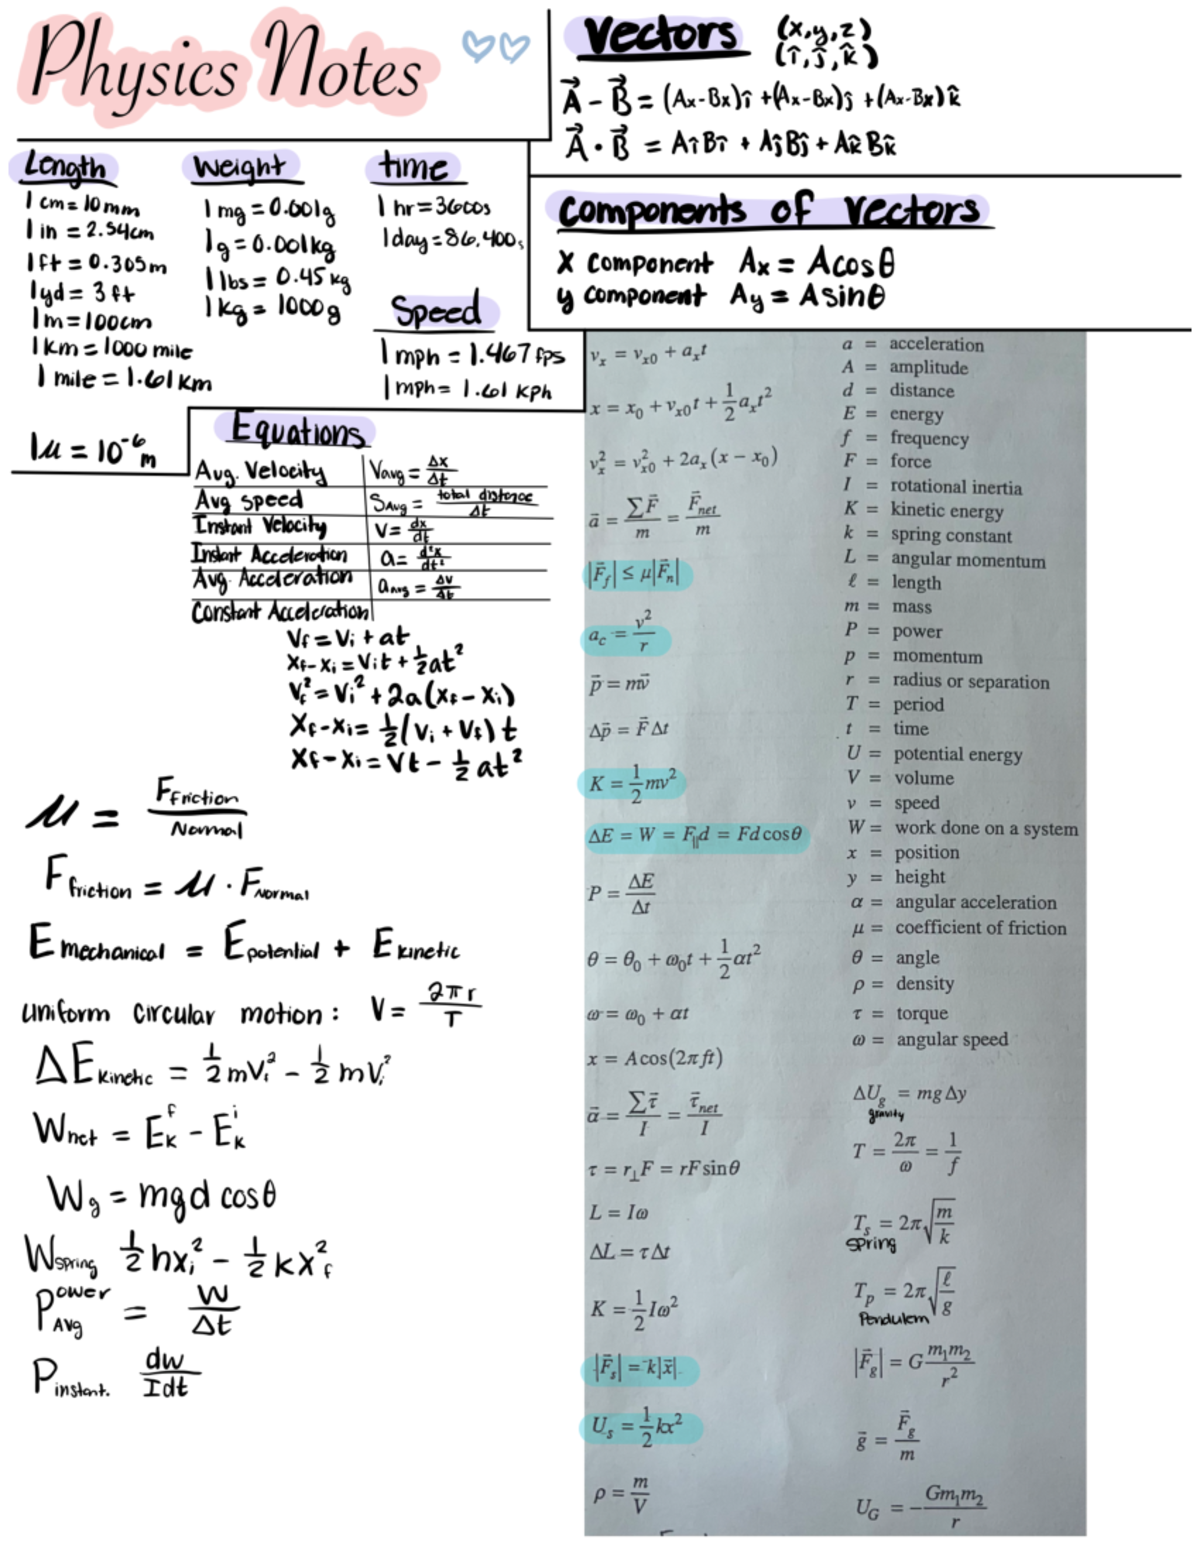 Physics Notes
Vectors (x,y,z)
(î,ĵ,k̂)
A⃗ - B⃗ = (Ax-Bx)î +(Ax-Bx)ĵ +(Ax-Bx)k̂
A⃗ · B⃗ = Aî Bî + Aĵ Bĵ + Ak̂ Bk̂
Length
1 cm = 10 mm
1 in = 2.54cm
1 ft = 0.305 m
1 yd = 3 ft
1 m = 100cm
1 km = 1000 mile
1 mile = 1.61 km
1μ = 10⁻⁶ m
Weight
1 mg = 0.001g
1 g = 0.001kg
1 lbs = 0.45 kg
1 kg = 1000 g
time
1 hr = 3600s
1 day = 86,400s
Speed
1 mph = 1.467 fps
1 mph = 1.61 kph
Components of Vectors
X component Ax = A cos θ
y component Ay = A sin θ
Equations
Avg. Velocity Vavg = Δx/Δt
Avg speed SAvg = total distance/Δt
Instant Velocity V = dx/dt
Instant Acceleration a = d²x/dt²
Avg. Acceleration aavg = Δv/Δt
Constant Acceleration
Vf = Vi + at
Xf - Xi = Vit + ½at²
Vf² = Vi² + 2a(Xf - Xi)
Xf - Xi = ½(Vi + Vf) t
Xf - Xi = Vt - ½ at²
μ = Ffriction/Normal
Ffriction = μ · FNormal
Emechanical = Epotential + Ekinetic
uniform circular motion: V = 2πr/T
ΔEkinetic = ½mVi² - ½mVi²
Wnet = Ek^f - Ek^i
Wg = mgd cosθ
Wspring ½hxi² - ½kxf²
Power Avg = W/Δt
Pinstant. dw/Idt
vx = vx0 + axt
x = x0 + vx0t + ½axt²
vx² = vx0² + 2ax(x − x0)
a⃗ = ΣF⃗/m = F⃗net/m
|F⃗f| ≤ μ|F⃗n|
ac = v²/r
p⃗ = mv⃗
Δp⃗ = F⃗ Δt
K = ½mv²
ΔE = W = F∥d = Fd cosθ
P = ΔE/Δt
θ = θ0 + ω0t + ½αt²
ω = ω0 + αt
x = A cos(2πft)
α⃗ = Στ⃗/I = τ⃗net/I
τ = r⊥F = rF sinθ
L = Iω
ΔL = τ Δt
K = ½Iω²
|F⃗s| = k|x⃗|
Us = ½kx²
ρ = m/V
a = acceleration
A = amplitude
d = distance
E = energy
f = frequency
F = force
I = rotational inertia
K = kinetic energy
k = spring constant
L = angular momentum
ℓ = length
m = mass
P = power
p = momentum
r = radius or separation
T = period
t = time
U = potential energy
V = volume
v = speed
W = work done on a system
x = position
y = height
α = angular acceleration
μ = coefficient of friction
θ = angle
ρ = density
τ = torque
ω = angular speed
ΔUg = mg Δy
gravity
T = 2π/ω = 1/f
Ts = 2π√(m/k)
spring
Tp = 2π√(ℓ/g)
Pendulem
|F⃗g| = G m1m2/r²
g⃗ = F⃗g/m
UG = −Gm1m2/r